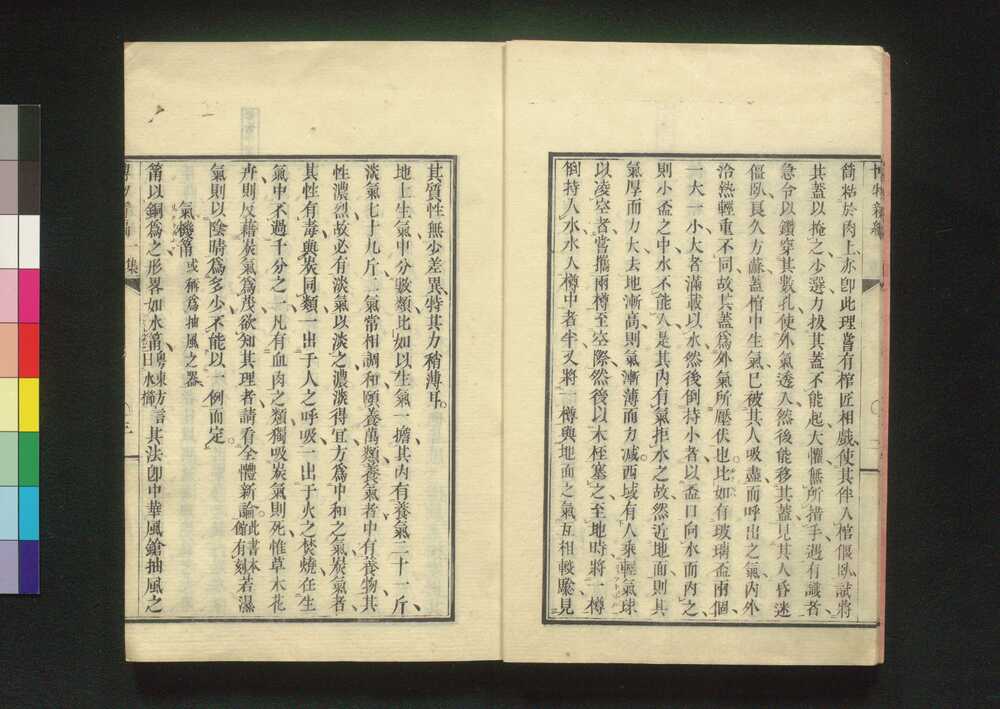 筒粘於肉上亦卽此理嘗有棺匠相戲使其伴入棺偃臥試將
其蓋以掩之少選力拔其蓋不能起大懼無所措手遇有識者
急令以鑽穿其數孔使外氣透入然後能移其蓋見其人昏迷
偃臥良久方蘇蓋棺中生氣已被其人吸盡而呼出之氣內外
冷熱輕重不同故其蓋爲外氣所壓伏也比如有玻璃盃兩個
一大一小大者滿載以水然後倒持小者以盃口向水面內之
則小盃之中水不能入是其內有氣拒水之故然近地面則其
氣厚而力大去地漸高則氣漸薄而力减西域有人乘輕氣球
以凌空者嘗攜兩樽至空際然後以木柽塞之至地時將一樽
倒持入水水入樽中者半又將一樽與地面之氣互相較驗見
其質性無少差異特其力稍薄耳
地上生氣中分數類比如以生氣一擔其內有養氣二十一斤
淡氣七十九斤二氣常相調和頤養萬類養氣者中有養物其
性濃烈故必有淡氣以淡之濃淡得宜方爲中和之氣炭氣者
其性有毒與炭同類一出于人之呼吸一出于火之焚燒在生
氣中不過千分之一凡有血肉之類獨吸炭氣則死惟草木花
卉則反藉炭氣爲茂欲知其理者請看全體新論此書本館有刻若濕
氣則以陰晴爲多少不能以一例而定
氣機筩或稱爲抽風之器
筩以銅爲之形畧如水筩粵東方言曰水櫛其法卽中華風鎗抽風之